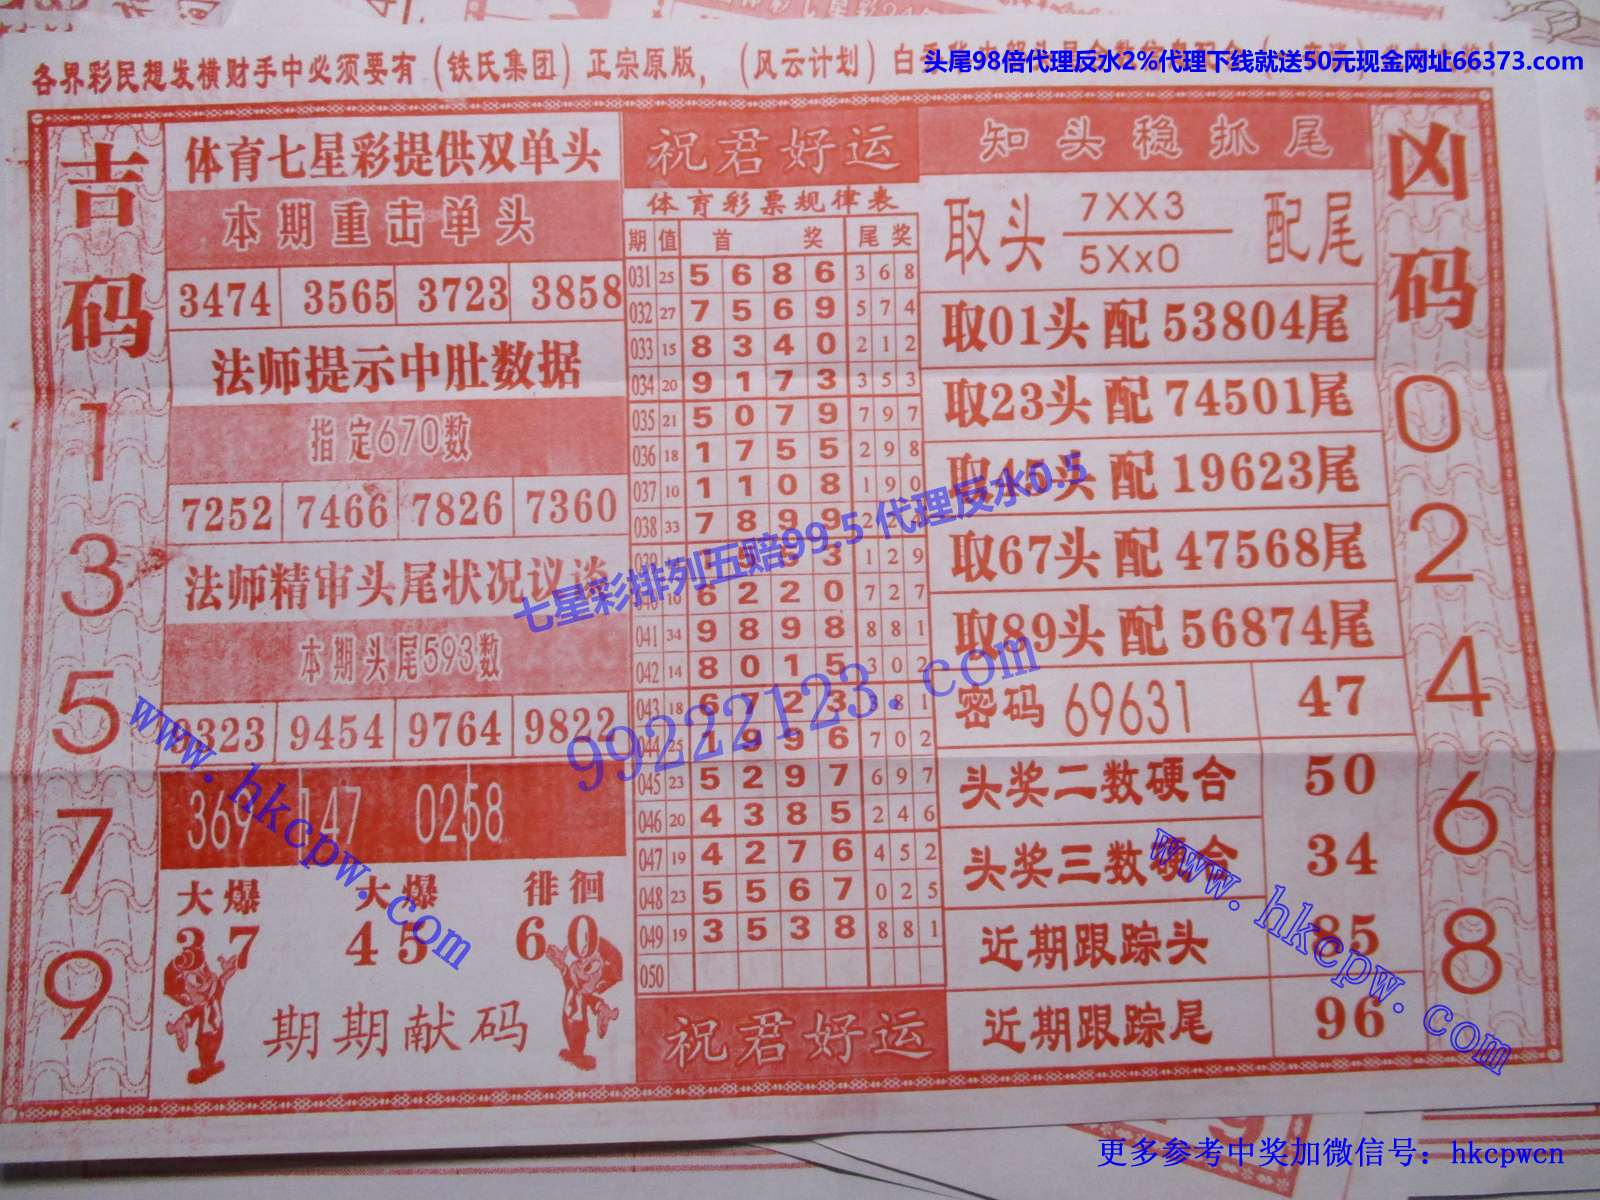 头尾98倍代理反水2%代理下线就送50元现金网址66373.com
各界彩民想发横财手中必须要有（铁氏集团）正宗原版，（风云计划）白
吉码
1
3
5
7
9
体育七星彩提供双单头
本期重击单头
3474 3565 3723 3858
法师提示中肚数据
指定670数
7252 7466 7826 7360
法师精审头尾状况议谈
本期头尾593数
3323 9454 9764 9822
369 147 0258
大爆 大爆 徘徊
37 45 60
期期献码
祝君好运
体育彩票规律表
期 值 首 奖 尾 奖
031 25 5 6 8 6 3 6 8
032 27 7 5 6 9 5 7 4
033 15 8 3 4 0 2 1 2
034 20 9 1 7 3 3 5 3
035 21 5 0 7 9 7 9 7
036 18 1 7 5 5 2 9 8
037 10 1 1 0 8 1 9 0
038 33 7 8 9 9 2 2
039 3 1 2 9
040 10 6 2 2 0 7 2 7
041 34 9 8 9 8 8 8 1
042 14 8 0 1 5 3 0 2
043 18 6 7 2 3 3 8 1
044 25 1 9 9 6 7 0 2
045 23 5 2 9 7 6 9 7
046 20 4 3 8 5 2 4 6
047 19 4 2 7 6 4 5 2
048 23 5 5 6 7 0 2 5
049 19 3 5 3 8 8 8 1
050
祝君好运
知头稳抓尾
取头 7XX3 配尾
5Xx0
取01头 配 53804尾
取23头 配 74501尾
取45头 配 19623尾
取67头 配 47568尾
取89头 配 56874尾
密码 69631 47
头奖二数硬合 50
头奖三数硬合 34
近期跟踪头 85
近期跟踪尾 96
凶码
0
2
4
6
8
七星彩排列五赔99.5 代理反水0.5
99222123.com
www.hkcpw.com
www.hkcpw.com
更多参考中奖加微信号：hkcpwcn